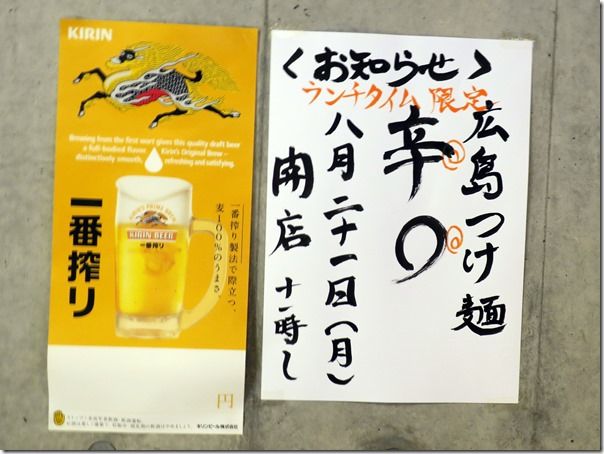 KIRIN
Brewing from the first wort gives this quality draft beer
a full-bodied flavor. Kirin's Original Brew –
distinctively smooth, refreshing and satisfying.
一番搾り
一番搾り製法で際立つ、
麦100%のうまさ。
KIRIN BEER
一番搾り
円
キリンビール株式会社
〈お知らせ〉
ランチタイム限定
広島つけ麺
辛〇
八月二十一日(月)
開店 十一時し